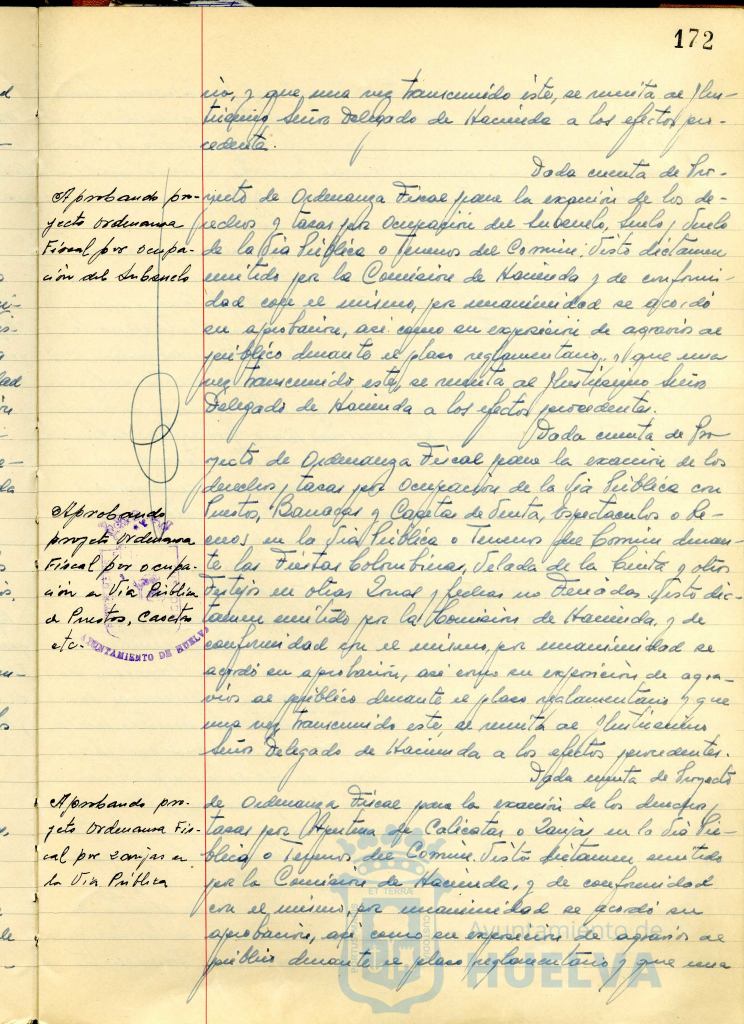 172
rio, y que una vez transcurrido éste, se remita al Ilus-
trísimo Señor Delegado de Hacienda a los efectos pro-
cedentes.
Dada cuenta de Pro-
Aprobando pro-
yecto Ordenanza
Fiscal por ocupa-
ción del Subsuelo
yecto de Ordenanza Fiscal para la exacción de los de-
rechos y tasas por Ocupación del Subsuelo, Suelo y Vuelo
de la Vía Pública o Terrenos del Común. Visto dictamen
emitido por la Comisión de Hacienda y de conformi-
dad con el mismo, por unanimidad se acordó
su aprobación, así como su exposición de agravios al
público durante el plazo reglamentario, y que una
vez transcurrido éste, se remita al Ilustrísimo Señor
Delegado de Hacienda a los efectos procedentes.
Dada cuenta de Pro-
yecto de Ordenanza Fiscal para la exacción de los
derechos y tasas por Ocupación de la Vía Pública con
Aprobando
proyecto Ordenanza
Fiscal por ocupa-
ción en Vía Pública
de Puestos, Casetas
etc.
AYUNTAMIENTO DE HUELVA
Puestos, Barracas y Casetas de Venta, Espectáculos o Re-
creos, en la Vía Pública o Terrenos del Común duran-
te las Fiestas Colombinas, Velada de la Cinta y otros
Festejos en otras Zonas y fechas no Feriadas. Visto dic-
tamen emitido por la Comisión de Hacienda, y de
conformidad con el mismo, por unanimidad se
acordó su aprobación, así como su exposición de agra-
vios al público durante el plazo reglamentario y que
una vez transcurrido éste, se remita al Ilustrísimo
Señor Delegado de Hacienda a los efectos procedentes.
Dada cuenta de Proyecto
Aprobando pro-
yecto Ordenanza Fis-
cal por zanjas en
la Vía Pública
de Ordenanza Fiscal para la exacción de los derechos y
tasas por Apertura de Calicatas o Zanjas en la Vía Pú-
blica o Terrenos del Común. Visto dictamen emitido
por la Comisión de Hacienda, y de conformidad
con el mismo, por unanimidad se acordó su
aprobación, así como su exposición de agravios al
público durante el plazo reglamentario y que una
Ayuntamiento de
HUELVA